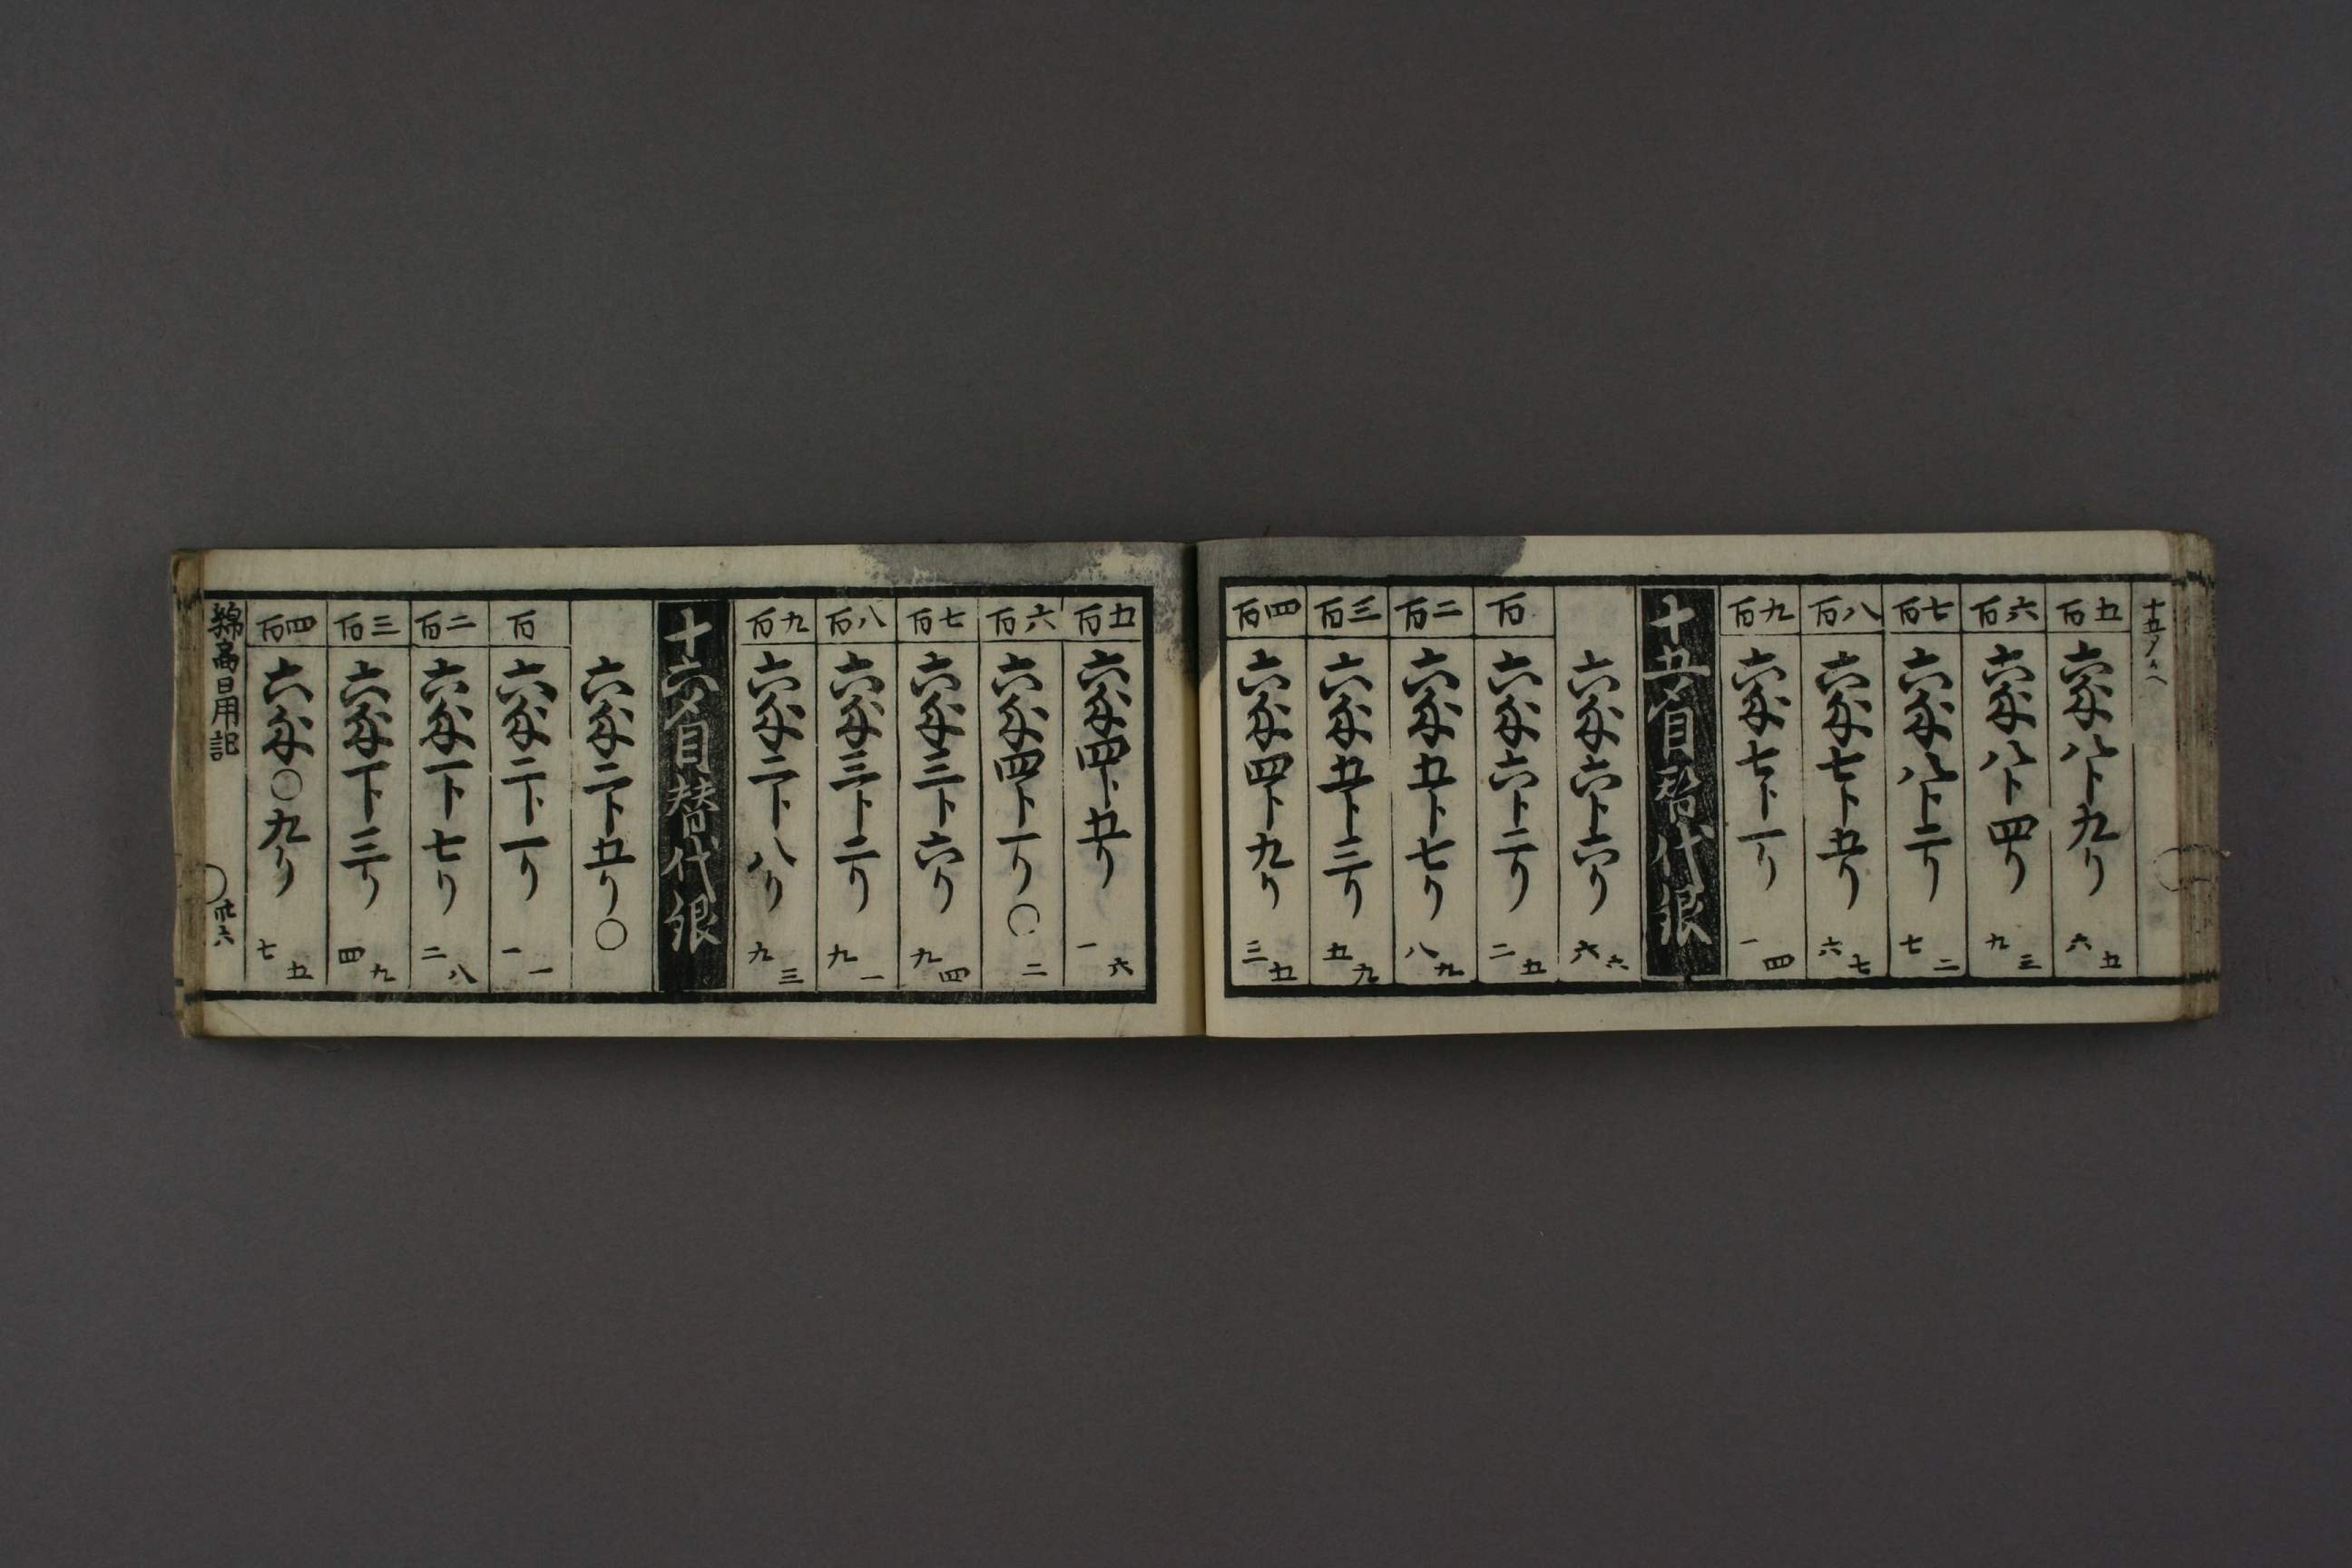 五百 六匁八ト九リ六五
六百 六匁八ト四リ九三
七百 六匁八ト二リ七二
八百 六匁七ト五リ六七
九百 六匁七ト一リ一四
十五〆目替代銀
六匁六ト六リ六六
百 六匁六ト二リ二五
二百 六匁五ト七リ八九
三百 六匁五ト三リ五九
四百 六匁四ト九リ三五
五百 六匁四ト五リ一六
六百 六匁四ト一リ〇二
七百 六匁三ト六リ九四
八百 六匁三ト二リ九一
九百 六匁二ト八リ九三
十六〆目替代銀
六匁二ト五リ〇
百 六匁二ト一リ一一
二百 六匁一ト七リ二八
三百 六匁一ト三リ四九
四百 六匁〇九リ七五
綿高日用記 丗六